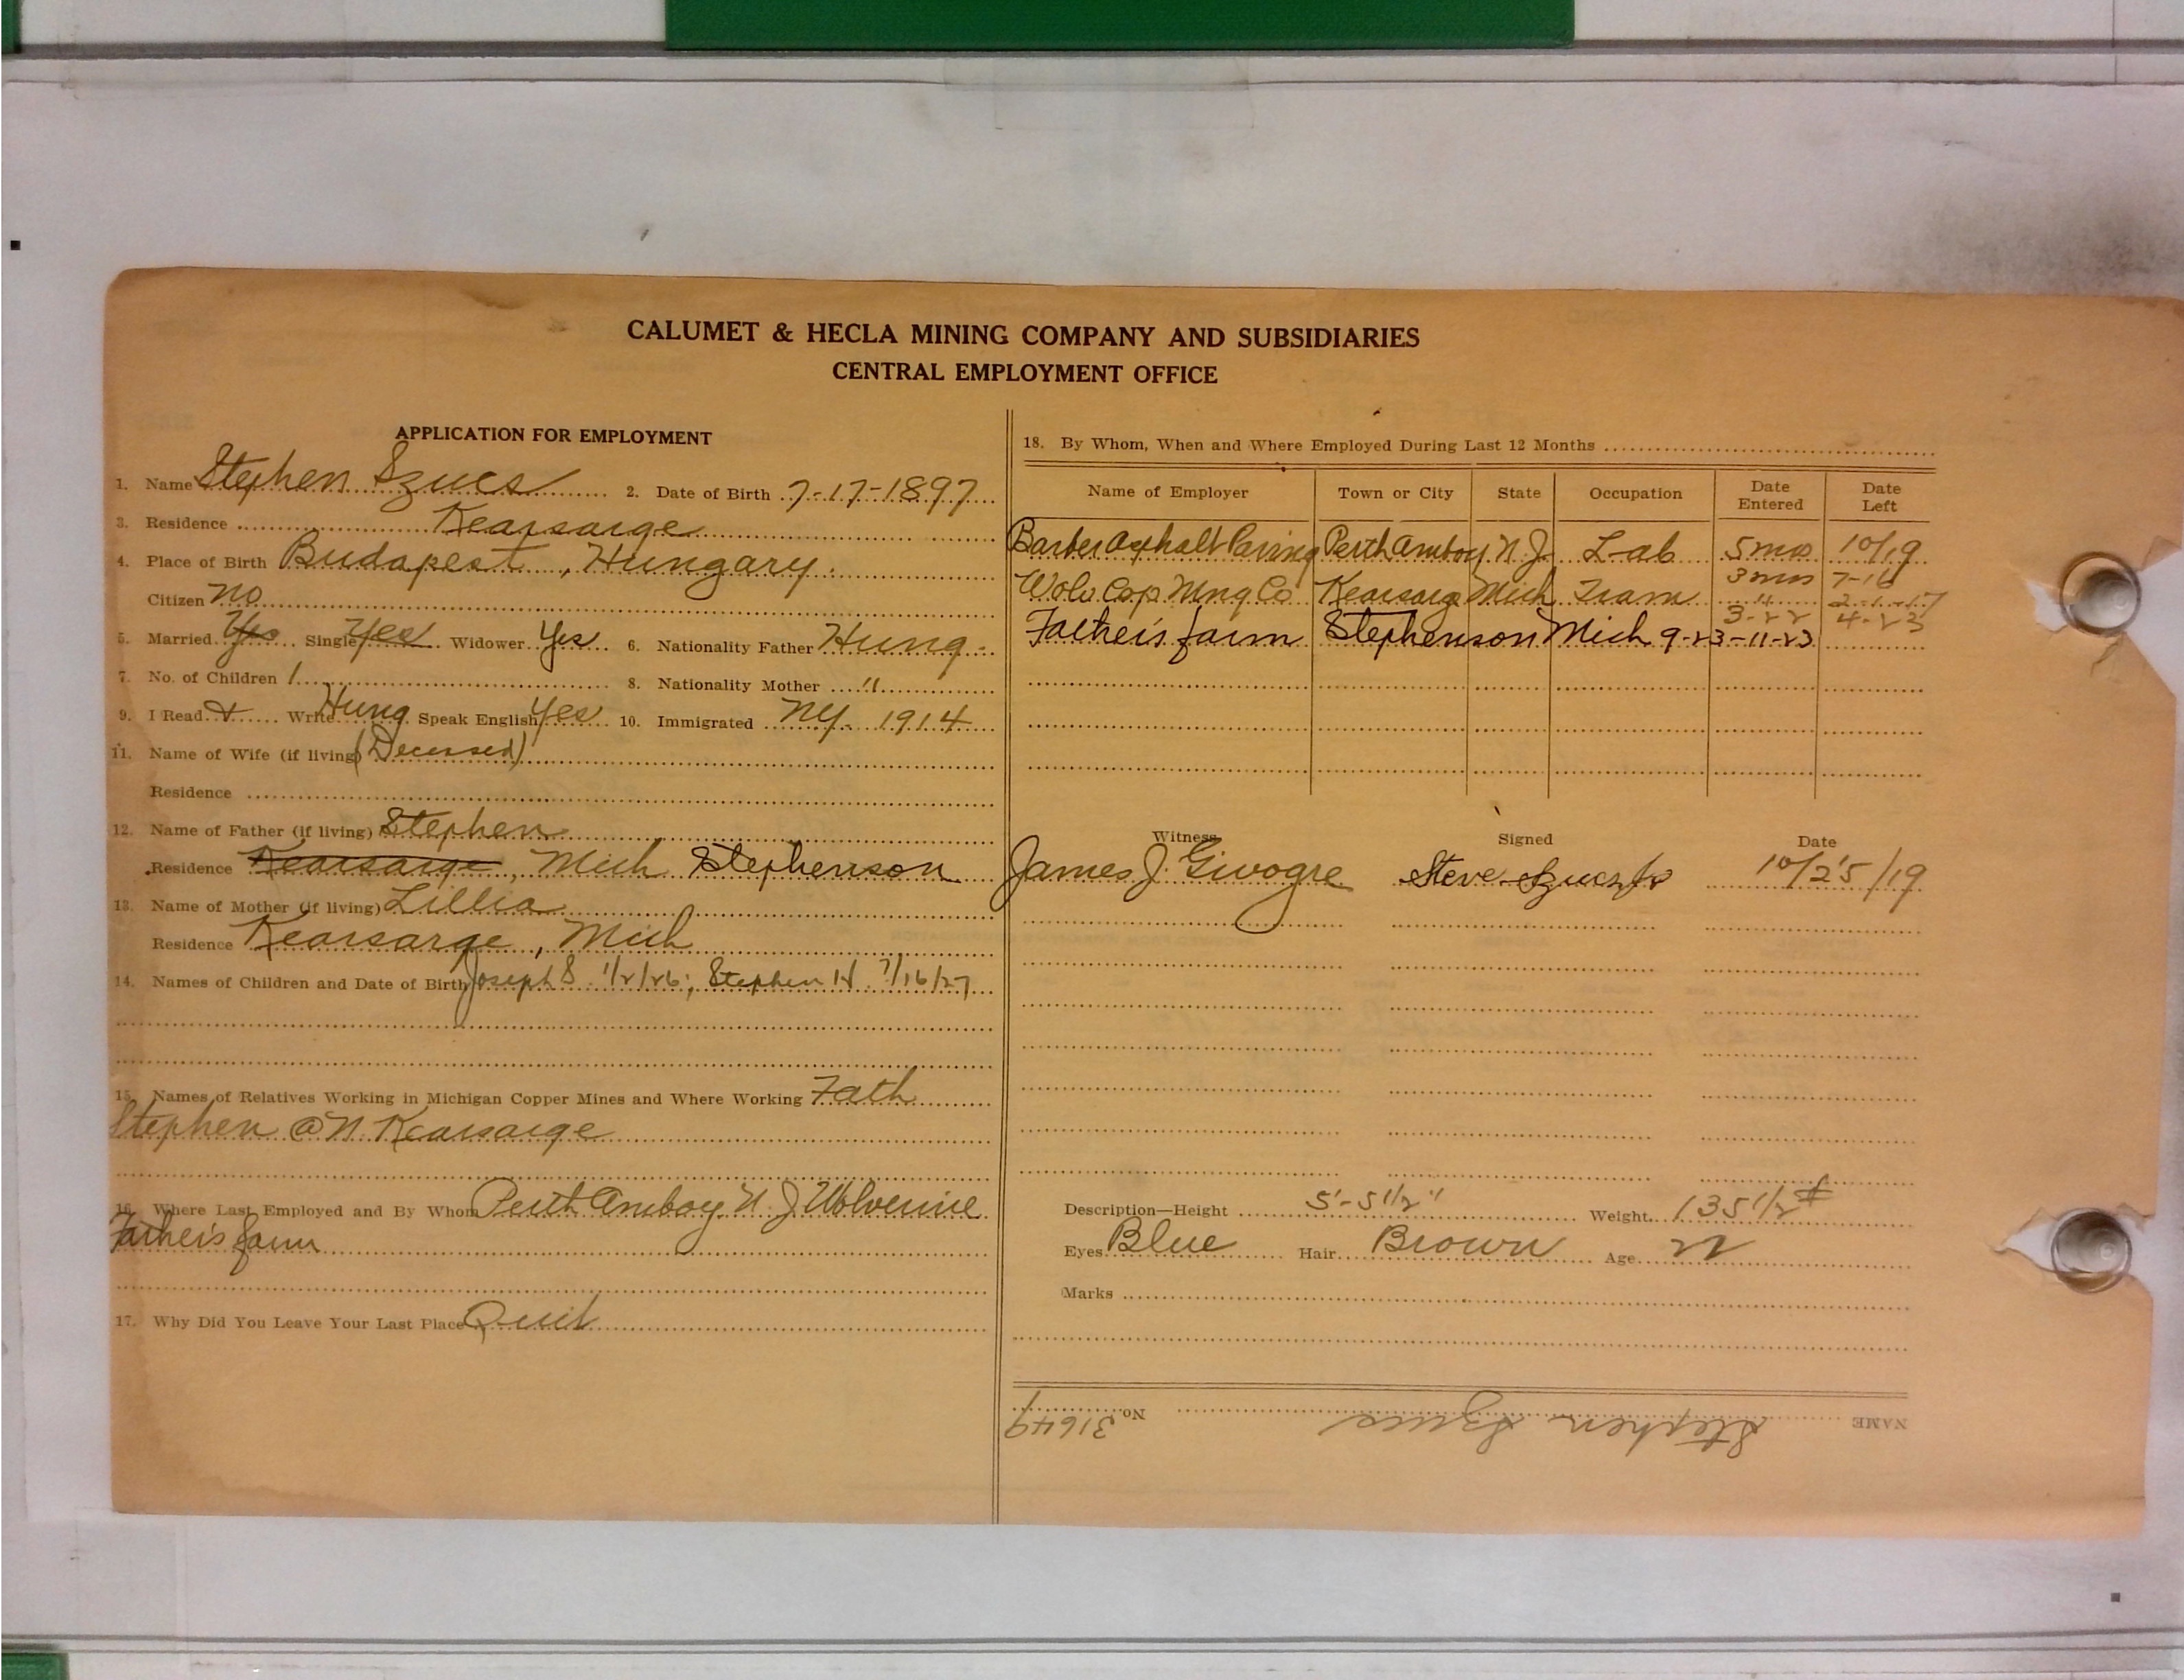 CALUMET & HECLA MINING COMPANY AND SUBSIDIARIES
CENTRAL EMPLOYMENT OFFICE
APPLICATION FOR EMPLOYMENT
1. Name Stephen Szucs 2. Date of Birth 7-17-1897
3. Residence Kearsarge
4. Place of Birth Budapest, Hungary.
Citizen no
5. Married Yes Single yes Widower Yes 6. Nationality Father Hung.
7. No. of Children 1 8. Nationality Mother "
9. I Read & Write Hung Speak English Yes 10. Immigrated NY. 1914
11. Name of Wife (if living) (Deceased)
Residence
12. Name of Father (if living) Stephen
Residence Kearsarge, Mich Stephenson
13. Name of Mother (if living) Lillia
Residence Kearsarge, Mich
14. Names of Children and Date of Birth Joseph S 1/2/26; Stephen H 7/16/27
15. Names of Relatives Working in Michigan Copper Mines and Where Working Fath
Stephen @ N. Kearsarge
16. Where Last Employed and By Whom Perth Amboy N. J Wolverine
Father's farm
17. Why Did You Leave Your Last Place Quit
18. By Whom, When and Where Employed During Last 12 Months
Name of Employer Town or City State Occupation Date Entered Date Left
Barber Asphalt Paving Perth Amboy N. J. Lab 5 mos 10/19
Wolv. Cop Mng Co Kearsarge Mich Tram 3 mos 7-16
" 2-1-17
3-22 4-23
Father's farm Stephenson Mich 9-23-11-23
Witness Signed Date
James J. Givogre Steve Szucs Jr 10/25/19
Description—Height 5'-5 1/2" Weight 135 1/2 #
Eyes Blue Hair Brown Age 22
Marks
NAME Stephen Szucs No. 31649